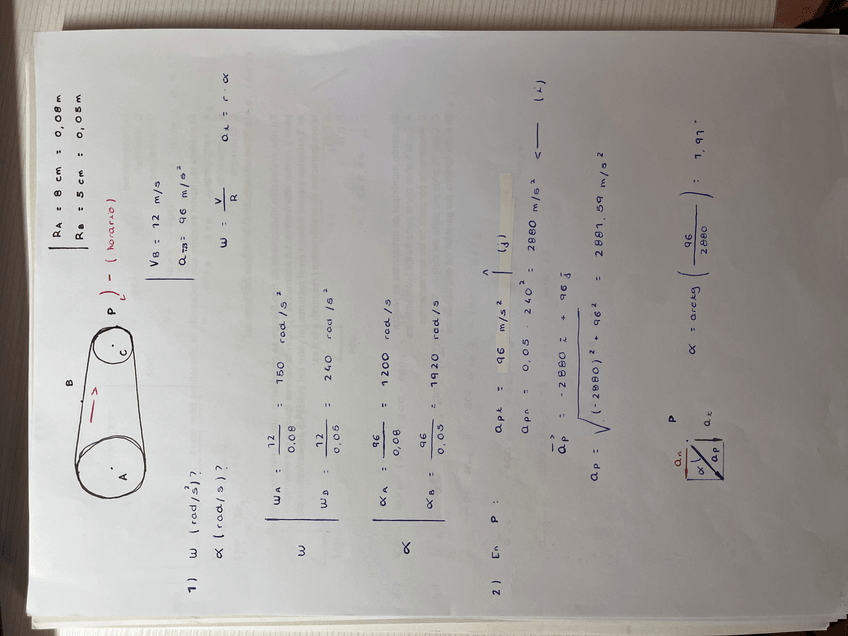 RA = 8 cm = 0,08 m
RB = 5 cm = 0,05 m
B
A
C
P
- (horario)
VB = 12 m/s
aTB = 96 m/s²
1) ω (rad/s²)?
α (rad/s)?
ω = V/R
at = r · α
ω
ωA = 12/0,08 = 150 rad/s²
ωB = 12/0,05 = 240 rad/s²
α
αA = 96/0,08 = 1200 rad/s
αB = 96/0,05 = 1920 rad/s
2) En P:
apt = 96 m/s² (ĵ)
apn = 0,05 · 240² = 2880 m/s² <— (i)
ap = -2880 i + 96 j
ap = √(-2880)² + 96² = 2881,59 m/s²
P
an
α
ap
at
α = arctg (96/2880) = 1,91°